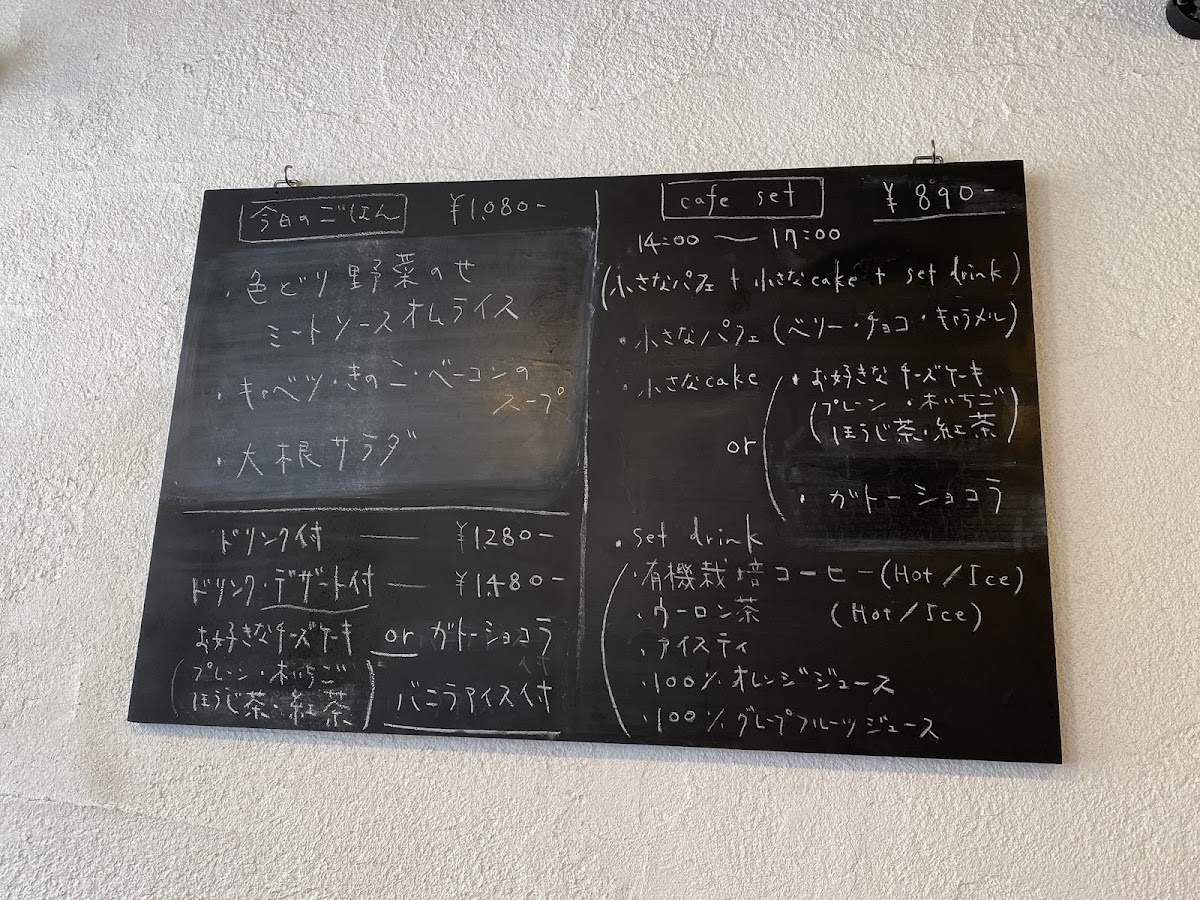 今日のごはん ¥1.080-
・色どり野菜のせ
ミートソースオムライス
・キャベツ・きのこ・ベーコンの
スープ
・大根サラダ
ドリンク付 — ¥1.280-
ドリンク・デザート付 — ¥1.480-
お好きなチーズケーキ or ガトーショコラ
(プレーン・木いちご
ほうじ茶・紅茶)
バニラアイス付
cafe set ¥890-
14:00 〜 17:00
(小さなパフェ + 小さなcake + set drink)
・小さなパフェ(ベリー・チョコ・キャラメル)
・小さなcake
(・お好きなチーズケーキ
(プレーン・木いちご
ほうじ茶・紅茶)
or
・ガトーショコラ
・set drink
(・有機栽培コーヒー(Hot/Ice)
・ウーロン茶 (Hot/Ice)
・アイスティ
・100%オレンジジュース
・100%グレープフルーツジュース